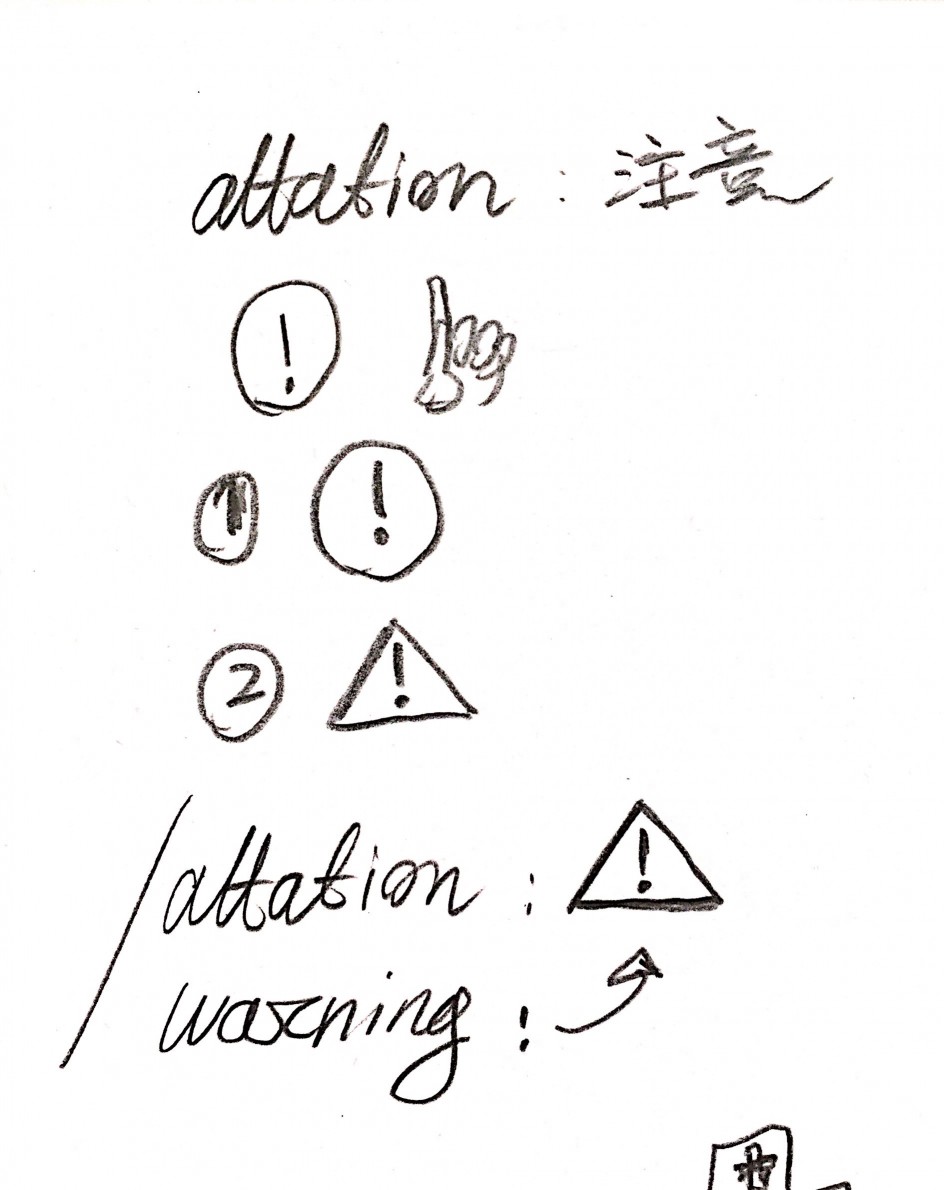 attation : 注意
!
1 !
2 !
attation : !
warning :